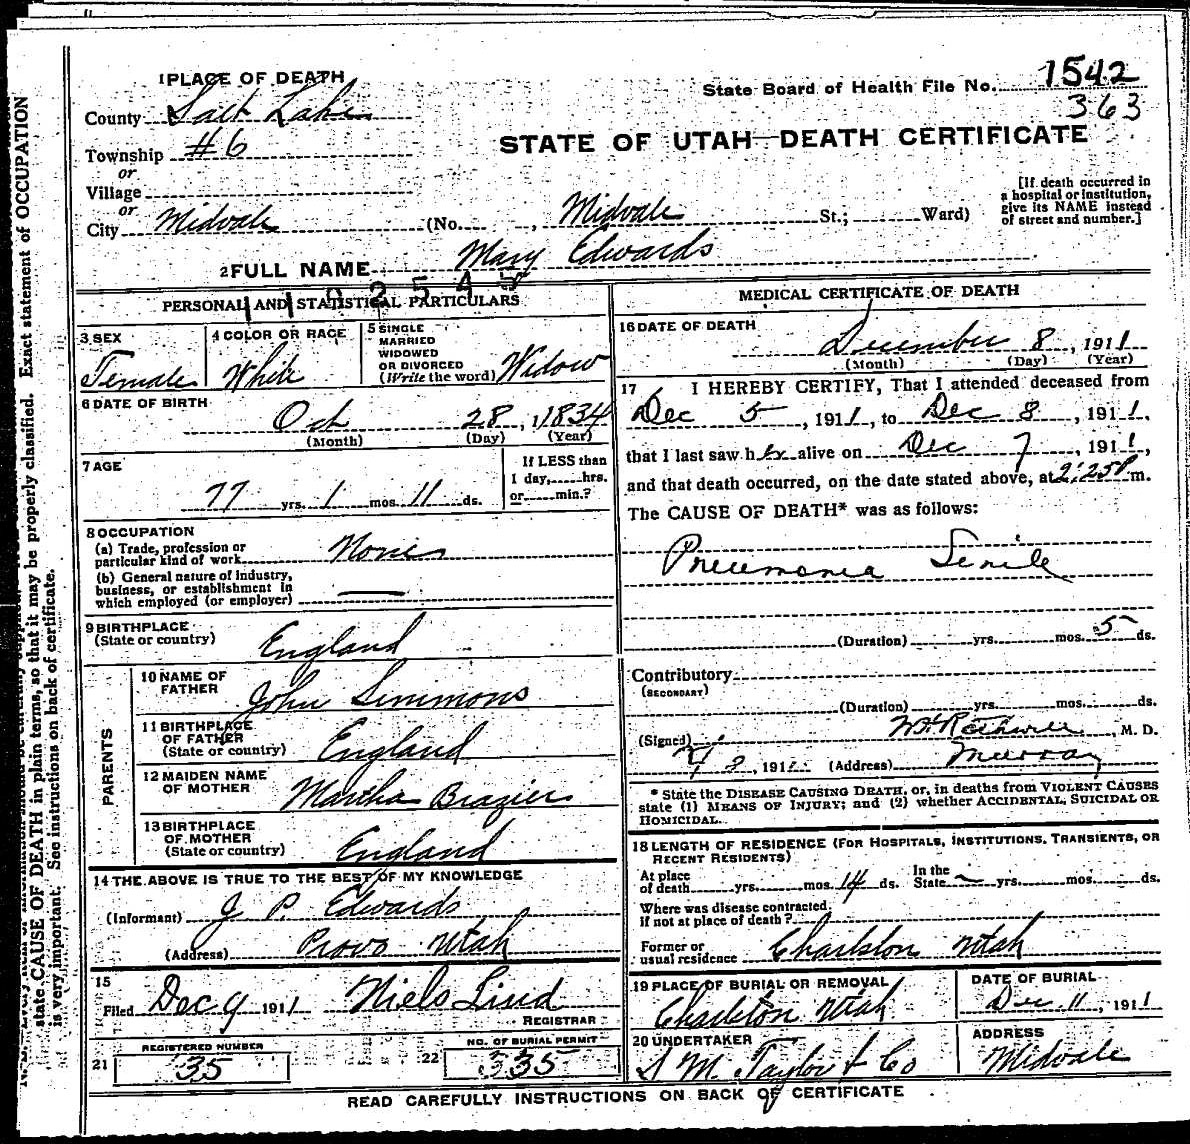 1 PLACE OF DEATH
State Board of Health File No. 1542
363
County Salt Lake
STATE OF UTAH—DEATH CERTIFICATE
Township #6
or
Village
or
City Midvale (No. , Midvale St.; Ward)
[If death occurred in
a hospital or institution,
give its NAME instead
of street and number.]
2 FULL NAME Mary Edwards
PERSONAL AND STATISTICAL PARTICULARS
3 SEX
Female
4 COLOR OR RACE
White
5 SINGLE
MARRIED
WIDOWED
OR DIVORCED
(Write the word) Widow
6 DATE OF BIRTH
Oct 28, 1834
(Month) (Day) (Year)
7 AGE
77 yrs. 1 mos. 11 ds.
If LESS than
1 day, hrs.
or min.?
8 OCCUPATION
(a) Trade, profession or
particular kind of work None
(b) General nature of industry,
business, or establishment in
which employed (or employer)
9 BIRTHPLACE
(State or country) England
PARENTS
10 NAME OF
FATHER John Simmons
11 BIRTHPLACE
OF FATHER
(State or country) England
12 MAIDEN NAME
OF MOTHER Martha Brazier
13 BIRTHPLACE
OF MOTHER
(State or country) England
14 THE ABOVE IS TRUE TO THE BEST OF MY KNOWLEDGE
(Informant) J P. Edwards
(Address) Provo Utah
15
Filed Dec 9 1911 Niels Lind
REGISTRAR
21 REGISTERED NUMBER
35
22 NO. OF BURIAL PERMIT
335
MEDICAL CERTIFICATE OF DEATH
16 DATE OF DEATH
December 8, 1911
(Month) (Day) (Year)
17 I HEREBY CERTIFY, That I attended deceased from
Dec 5, 1911, to Dec 8, 1911,
that I last saw her alive on Dec 7, 1911,
and that death occurred, on the date stated above, at 2:25 P m.
The CAUSE OF DEATH* was as follows:
Pneumonia Senile
(Duration) yrs. mos. 5 ds.
Contributory
(SECONDARY)
(Duration) yrs. mos. ds.
(Signed) M. D.
, 191 (Address) Murray
* State the DISEASE CAUSING DEATH, or, in deaths from VIOLENT CAUSES
state (1) MEANS OF INJURY; and (2) whether ACCIDENTAL, SUICIDAL OR
HOMICIDAL.
18 LENGTH OF RESIDENCE (FOR HOSPITALS, INSTITUTIONS, TRANSIENTS, OR
RECENT RESIDENTS)
At place
of death yrs. mos. 14 ds. In the
State yrs. mos. ds.
Where was disease contracted,
if not at place of death?
Former or
usual residence Charlston Utah
19 PLACE OF BURIAL OR REMOVAL
Charleston Utah
DATE OF BURIAL
Dec 11, 1911
20 UNDERTAKER
S M. Taylor & Co
ADDRESS
Midvale
READ CAREFULLY INSTRUCTIONS ON BACK OF CERTIFICATE
state CAUSE OF DEATH in plain terms, so that it may be properly classified. Exact statement of OCCUPATION
is very important. See instructions on back of certificate.